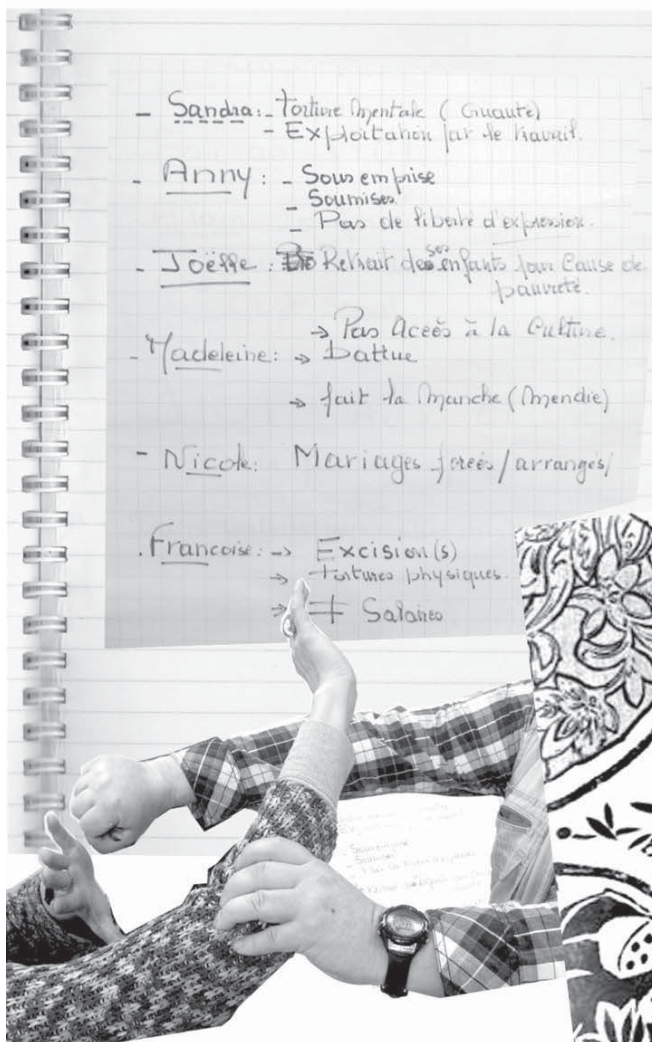 - Sandra : - Torture Mentale ( Cruauté)
- Exploitation par le travail.
- Anny : - Sous emprise
- Soumises
- Pas de liberté d'expression.
- Joëlle : Retrait de ses enfants pour Cause de
pauvreté.
→ Pas Accès à la Culture.
- Madeleine : → Battue
→ fait la Manche (Mendie)
- Nicole : Mariages forcés / arrangés /
. Francoise : → Excision(s)
→ Tortures physiques.
→ ≠ Salaires